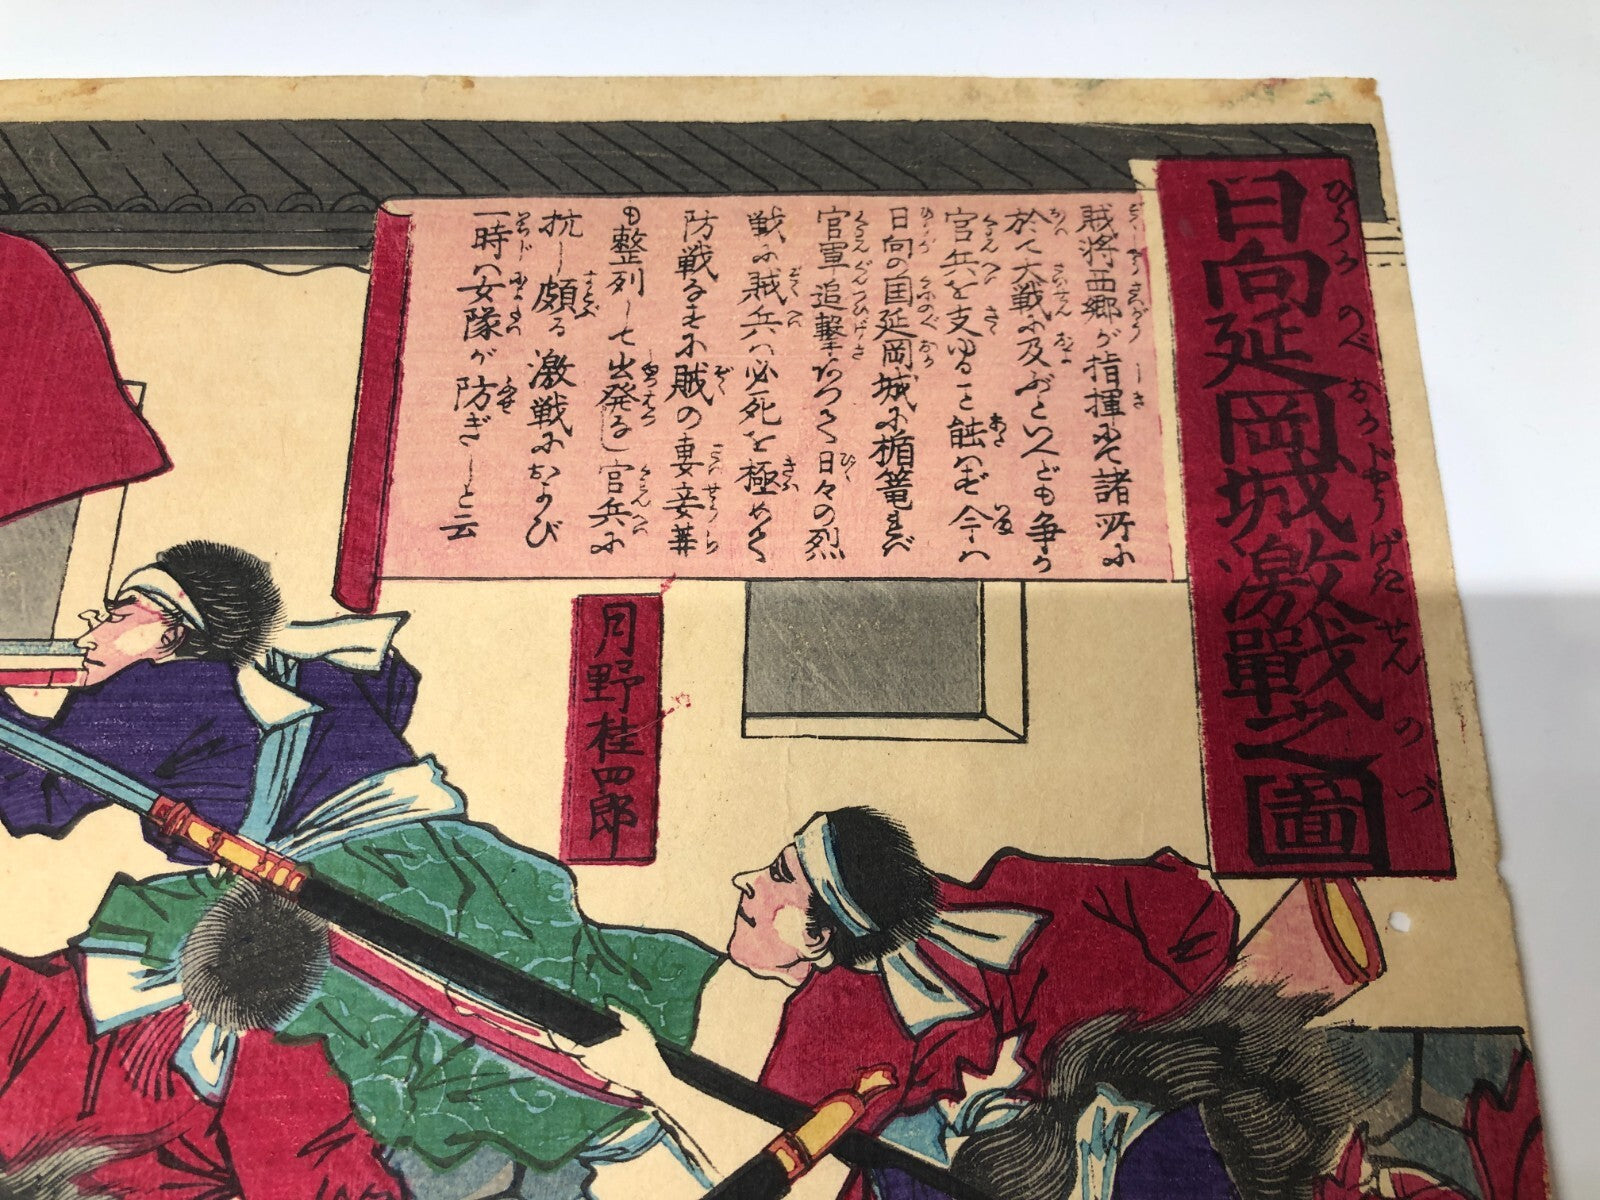 日向延岡城激戰之圖
ひうがのべおかじやうげきせんのづ
賊将西郷が指揮にて諸所に
於て大戦に及ぶといへども争か
官兵を支ゆること能はず今は
日向の国延岡城に楯篭れば
官軍追撃なつて日々の烈
戦に賊兵は必死を極めて
防戦なすに賊の妻妾等
も整列して出発なし官兵に
抗し頗る激戦におよび
一時は女隊が防ぎしと云
月野桂四郎